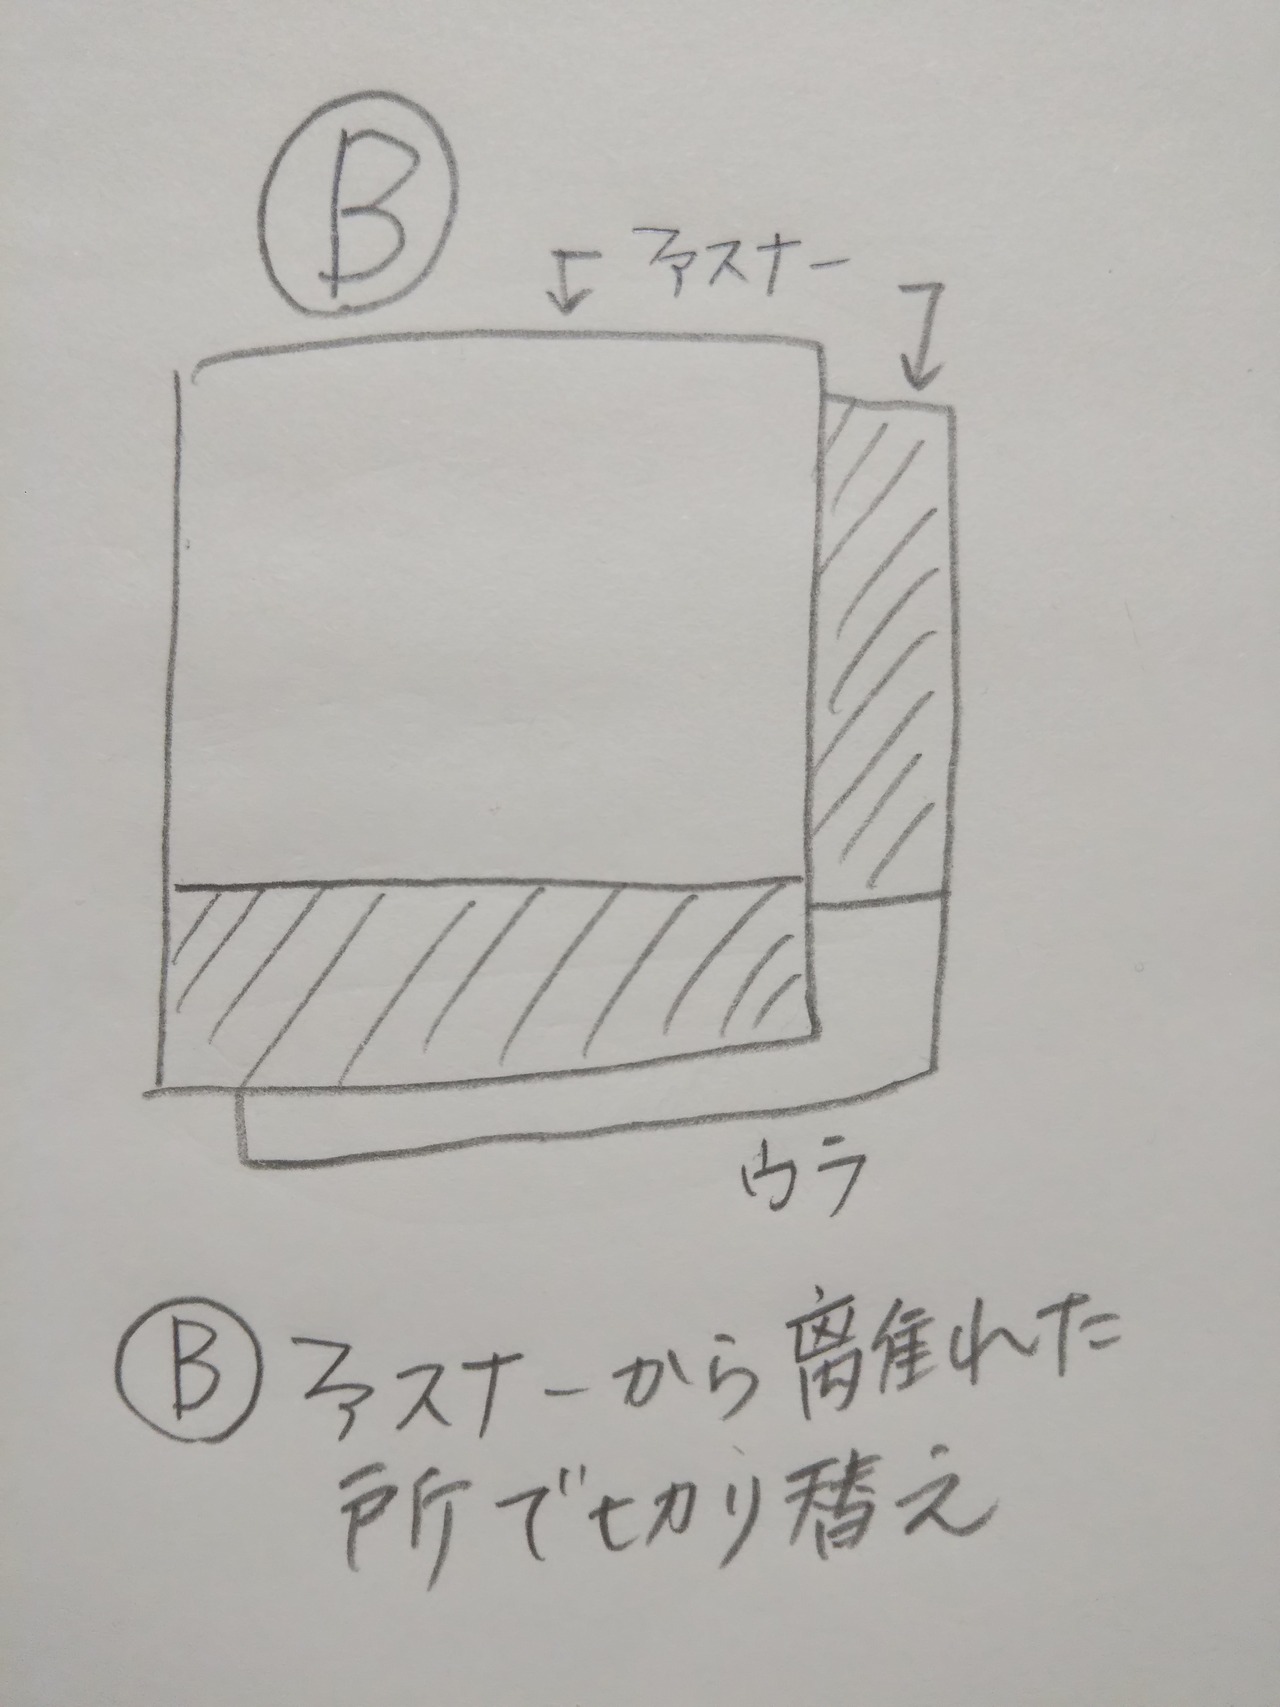 Ⓑ
ファスナー
ウラ
Ⓑ ファスナーから離れた
所で切り替え